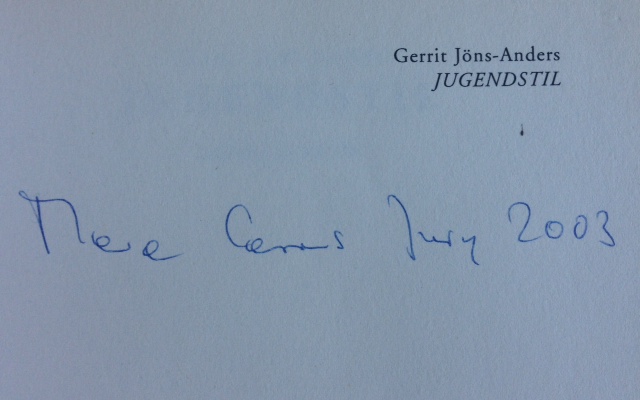 Gerrit Jöns-Anders
JUGENDSTIL
Mara Cassens Jury 2003